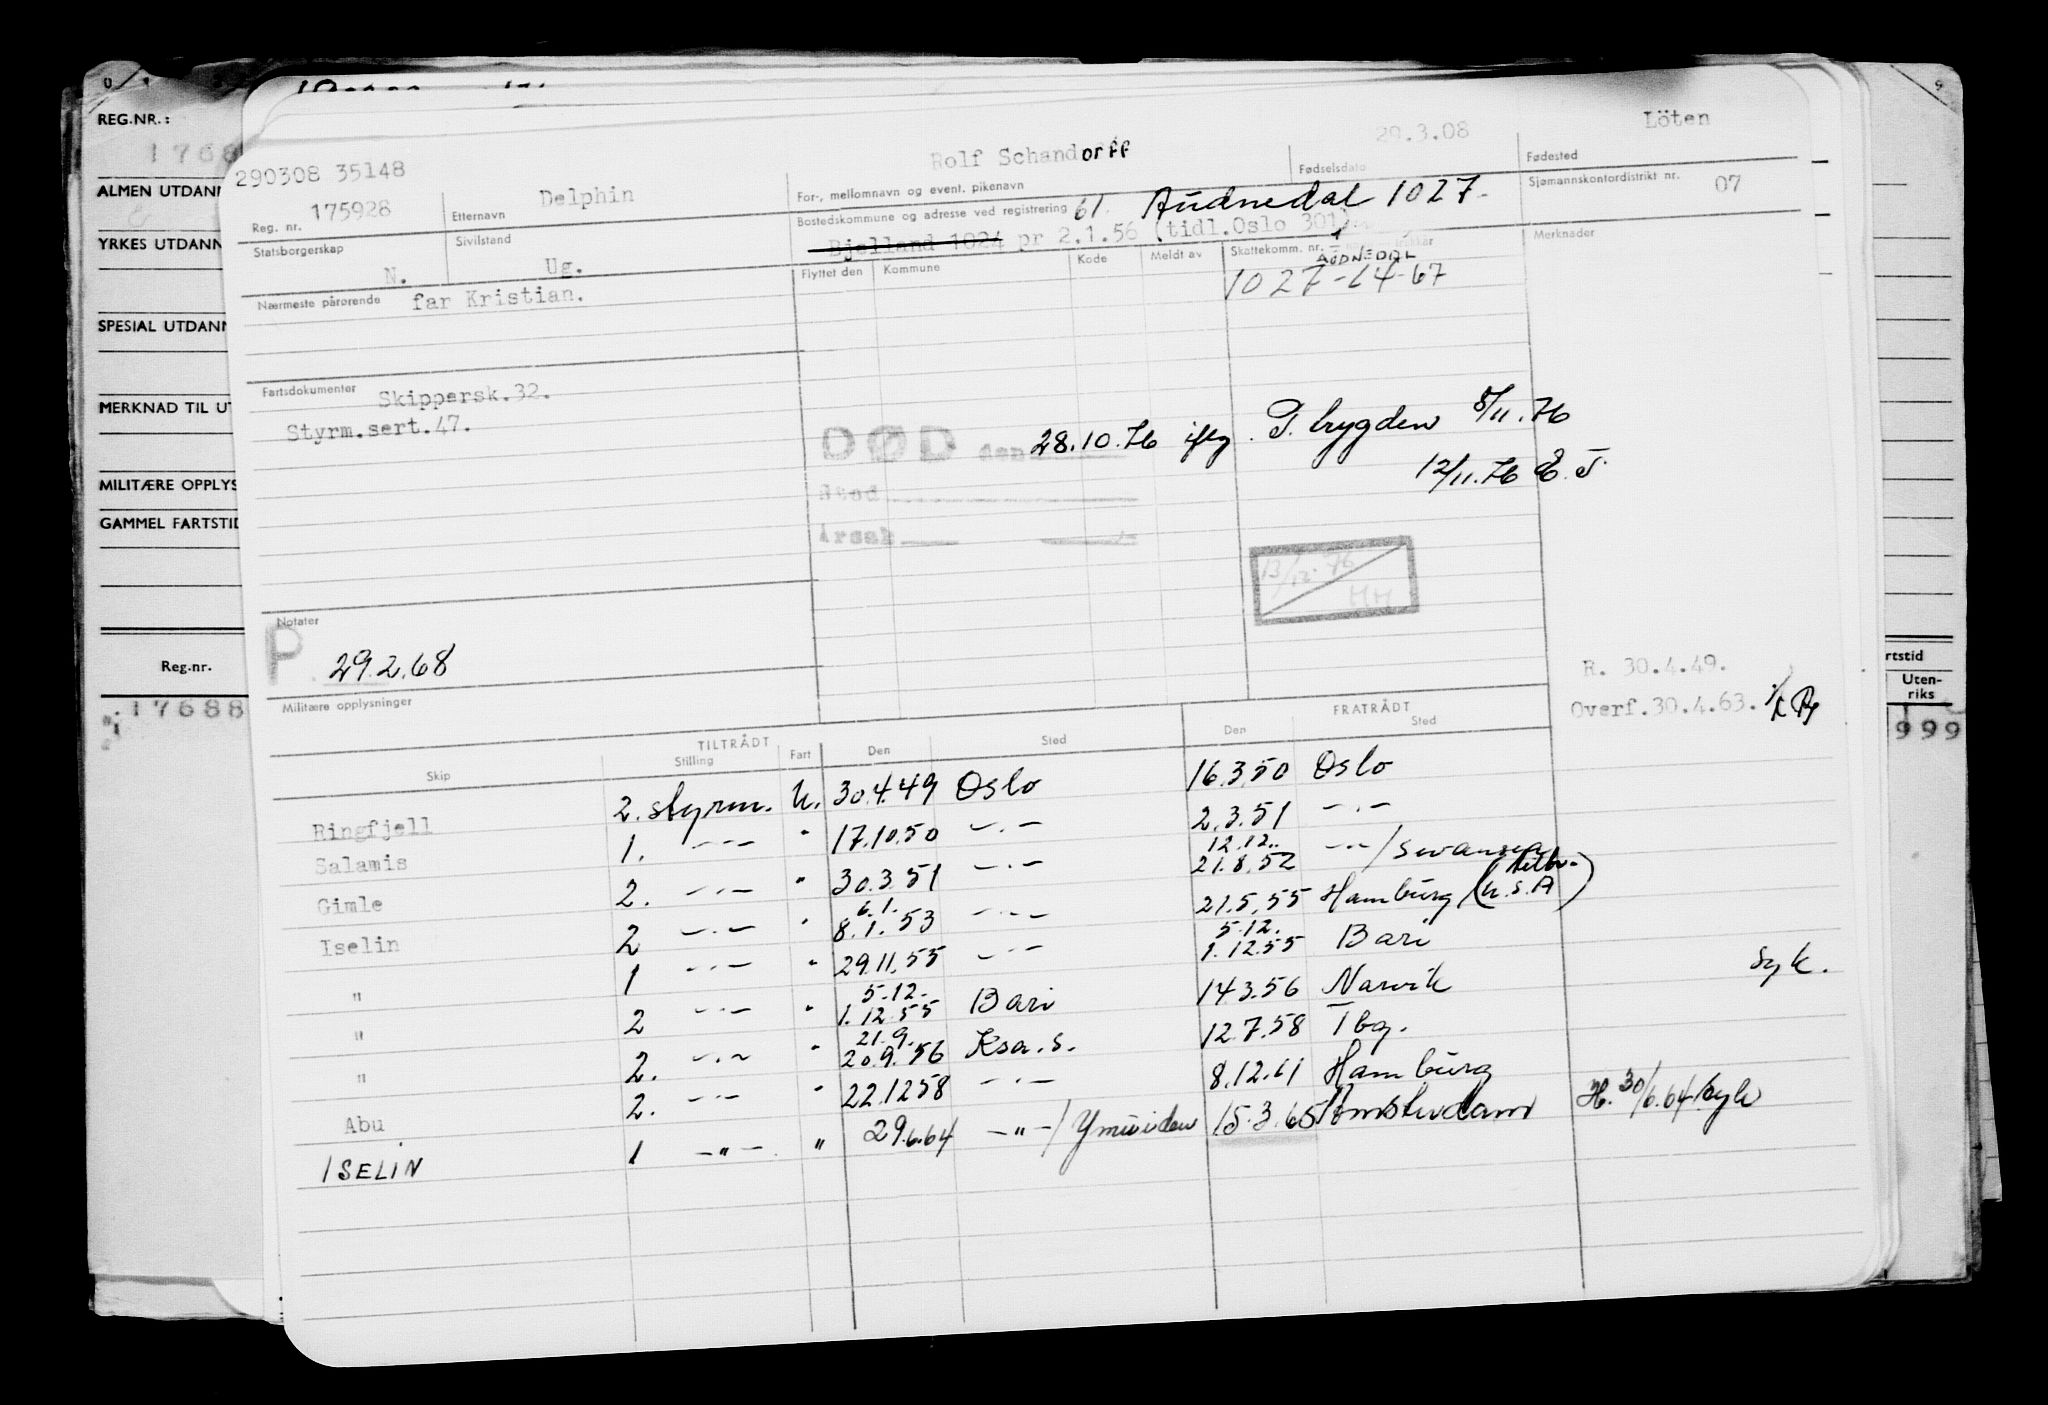 REG.NR.:
1768
ALMEN UTDANN
YRKES UTDANN
SPESIAL UTDANN
MERKNAD TIL UT
MILITÆRE OPPLYS
GAMMEL FARTSTID
Reg.nr.
17688
290308 35148
Reg. nr. 175928
Etternavn Delphin
Rolf Schandorff
For-, mellomnavn og event. pikenavn
29.3.08
Fødselsdato
Löten
Fødested
Statsborgerskap N.
Sivilstand Ug.
Bostedskommune og adresse ved registrering 61. Audnedal 1027-
Bjelland 1024 pr 2.1.56 (tidl.Oslo 301)
Sjømannskontordistrikt nr. 07
Nærmeste pårørende far Kristian.
Flyttet den Kommune Kode Meldt av Skattekomm. nr.
AUDNEDAL
1027-14-67
Merknader
Fartsdokumenter Skippersk.32.
Styrm.sert.47.
DØD den 28.10.76 iflg. T. brygden 5/11.76
12/11.76 E.T.
Sted
Årsak
13/12-76
HH
Notater
P 29.2.68
Militære opplysninger
R. 30.4.49.
Overf.30.4.63.
rtstid
Uten-
riks
999
TILTRÅDT FRATRÅDT
Skip Stilling Fart Den Sted Den Sted
Ringfjell 2. styrm. U. 30.4.49 Oslo 16.3.50 Oslo
Salamis 1. -"- " 17.10.50 -.- 2.3.51 -.-
12.12..
Gimle 2. -.- " 30.3.51 -.- 21.8.52 -.-/Swansea
6.1.
Iselin 2 -.- " 8.1.53 -.- 21.5.55 Hamburg (U.S.A)
5.12.
" 1 -.- " 29.11.55 -.- 1.12.55 Bari
5.12.
" 2 -.- " 1.12.55 Bari 14.3.56 Narvik syk.
21.9.
" 2. -.- " 20.9.56 Ksa.s. 12.7.58 Tbg.
Abu 2. -.- " 22.12.58 -.- 8.12.61 Hamburg
ISELIN 1 -"-. " 29.6.64 -"-/Ymuiden 15.3.65 Amsterdam H. 30/6.64/syk